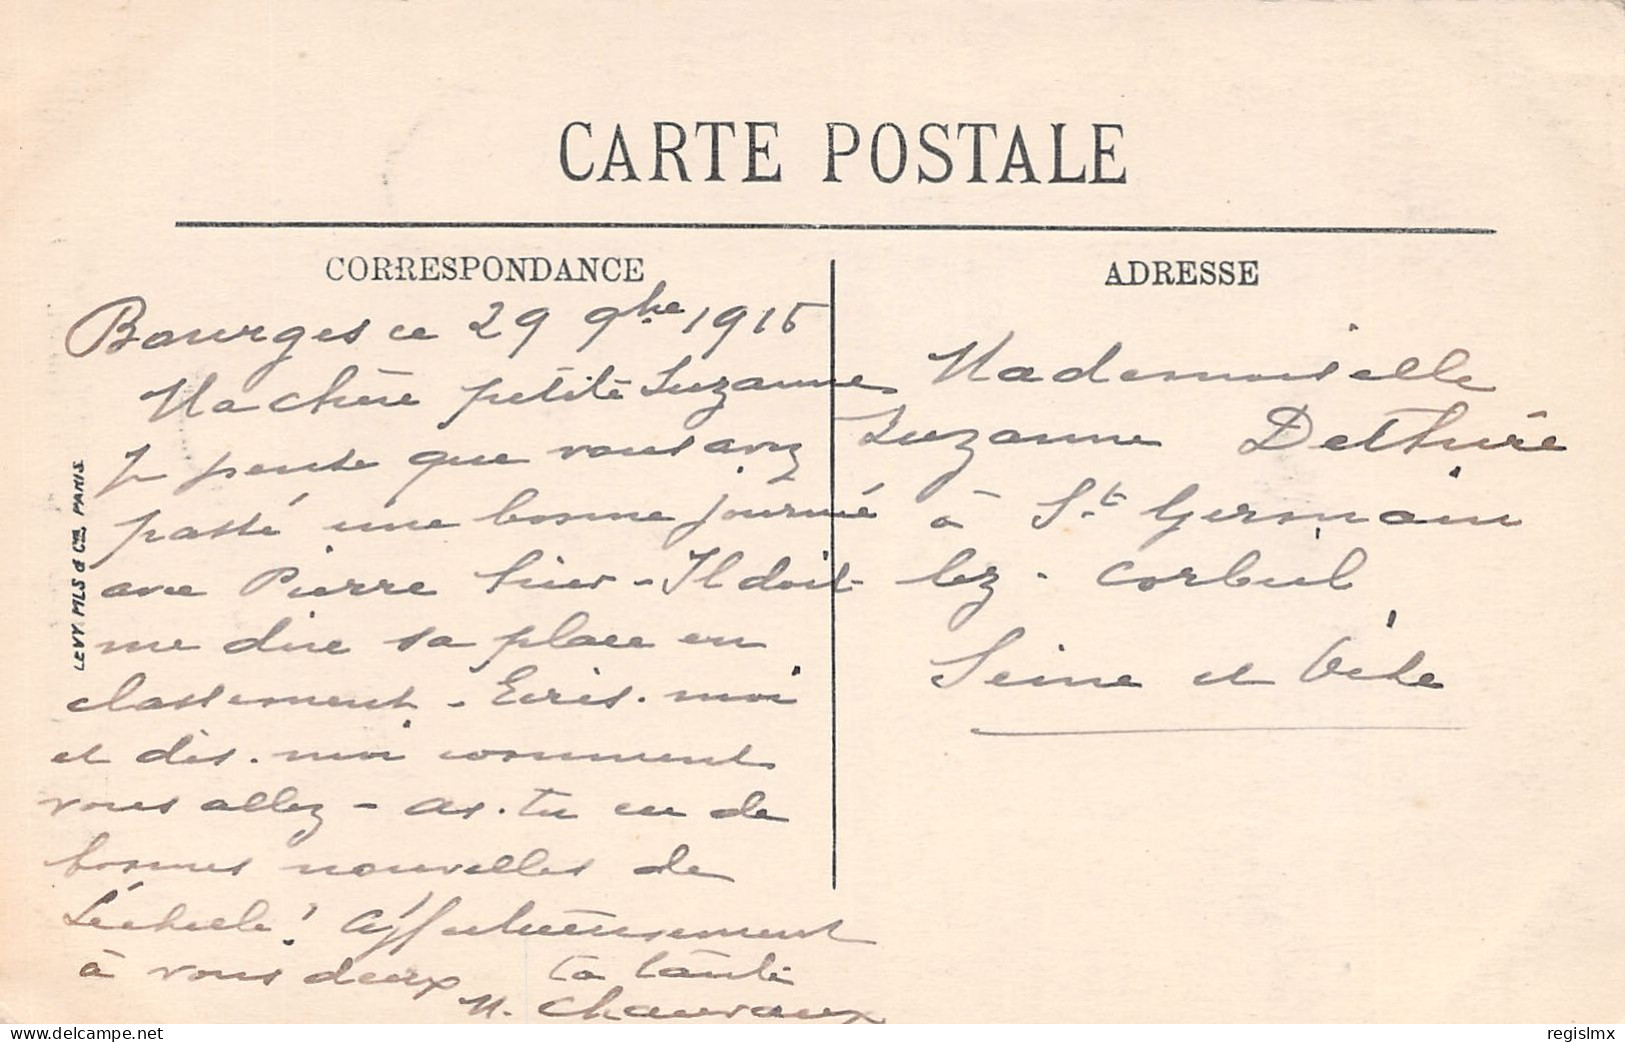 CARTE POSTALE
CORRESPONDANCE
Bourges ce 29 9bre 1915
Ma chère petite Suzanne
Je pense que vous avez
passé une bonne journée
avec Pierre hier - Il doit
me dire sa place en
classement - Ecris-moi
et dis-moi comment
vous allez - as-tu eu de
bonnes nouvelles de
! Affectueusement
à vous deux ta tante
M. Chauvaux
ADRESSE
Mademoiselle
Suzanne
à St Germain
lez-Corbeil
Seine et Oise
LEVY FILS & Cie. PARIS
regislmx
www.delcampe.net